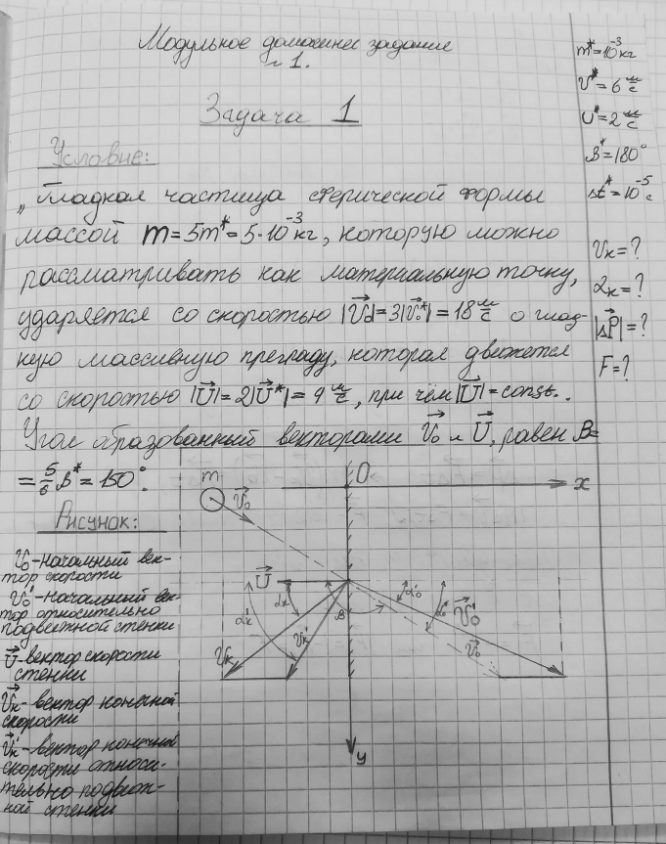 Модульное домашнее задание
№1.
Задача 1
Условие:
"Гладкая частица сферической формы
массой m=5m*=5·10⁻³кг, которую можно
рассматривать как материальную точку,
ударяется со скоростью |V₀|=3|V₀*|=18 м/с о глад-
кую массивную преграду, которая движется
со скоростью |U|=2|U*|=4 м/с, при чём |U|=const..
Угол образованный векторами V₀ и U, равен β=
=5/6 β*=150°.
m*=10⁻³кг
V*=6 м/с
U*=2 м/с
β*=180°
Δt*=10⁻⁵с
Vк=?
αк=?
|ΔP|=?
F=?
Рисунок:
V₀-начальный век-
тор скорости
V₀'-начальный ве-
тор относительно
подвижной стенки
U-вектор скорости
стенки
Vк-вектор конечной
скорости
Vк'-вектор конечной
скорости относи-
тельно подвиж-
ной стенки
m
V₀
O
x
U
αк'
αк
β
α₀'
α₀
V₀'
V₀
Vк
Vк'
y